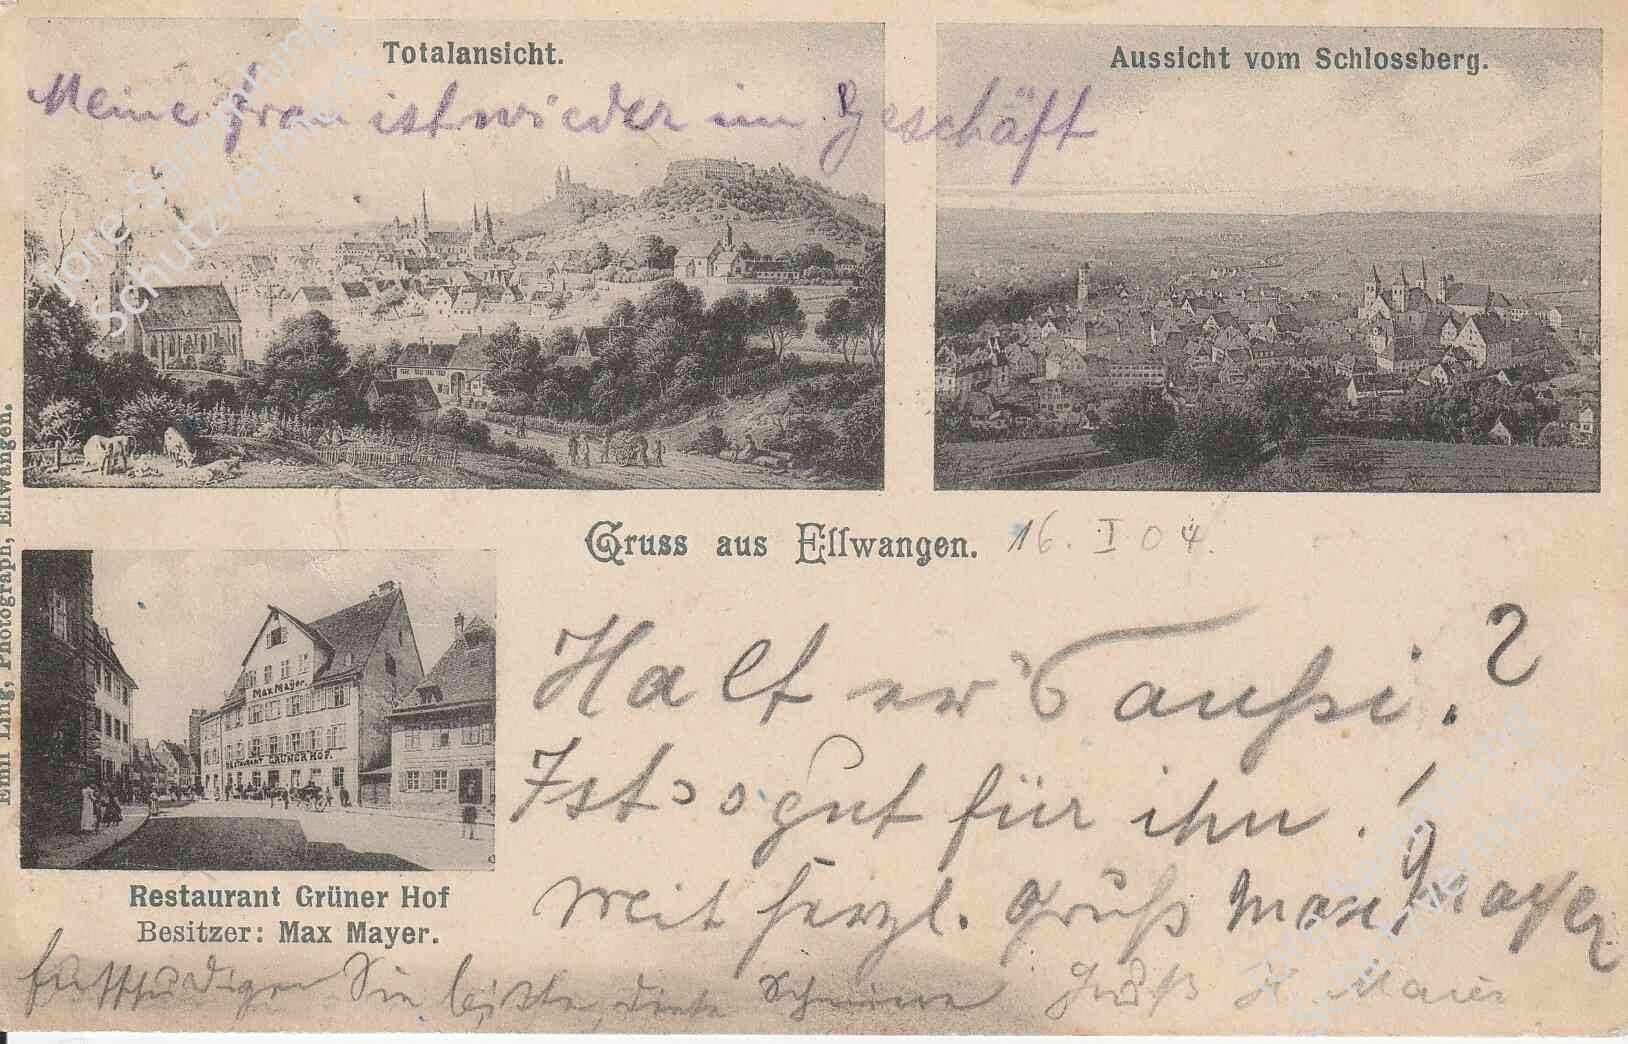 Totalansicht.
Aussicht vom Schlossberg.
Meine Frau ist wieder im Geschäft
Jore-Sammlung
Schutzvermerk
Gruss aus Ellwangen. 16. I 04.
Emil Ling, Photograph, Ellwangen.
Max Mayer.
RESTAURANT GRÜNER HOF.
Halt er's aushi.?
Ist's gut für ihn!
Mit herzl. Gruß Max Mayer
Restaurant Grüner Hof
Besitzer: Max Mayer.
Jore-Sammlung
Schutzvermerk
Sie bitte, diese Gruß Maier